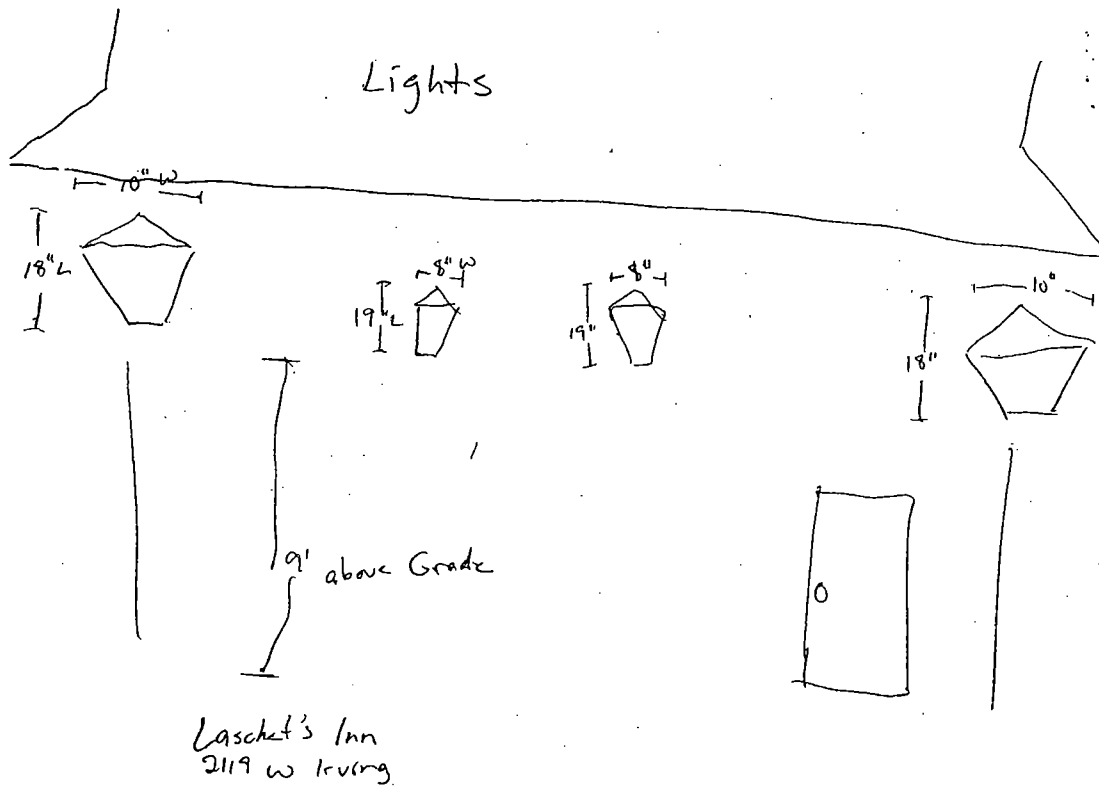 Lights
10" W
18" L
8" W
19" L
8"
19"
10"
18"
9' above Grade
Laschet's Inn
2119 W Irving